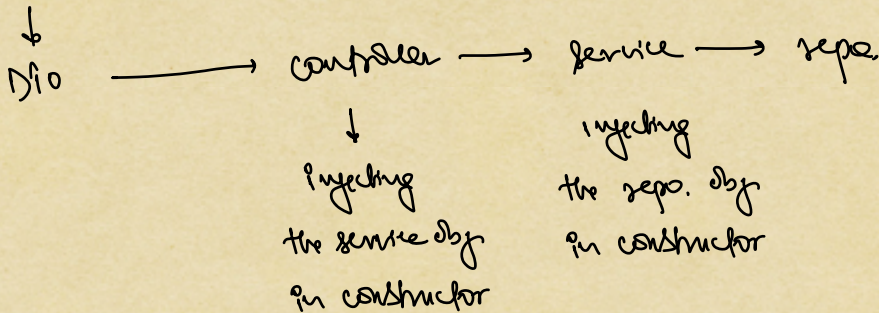 Dio → controller → service → repo.
injecting
the service obj
in constructor
injecting
the repo. obj
in constructor